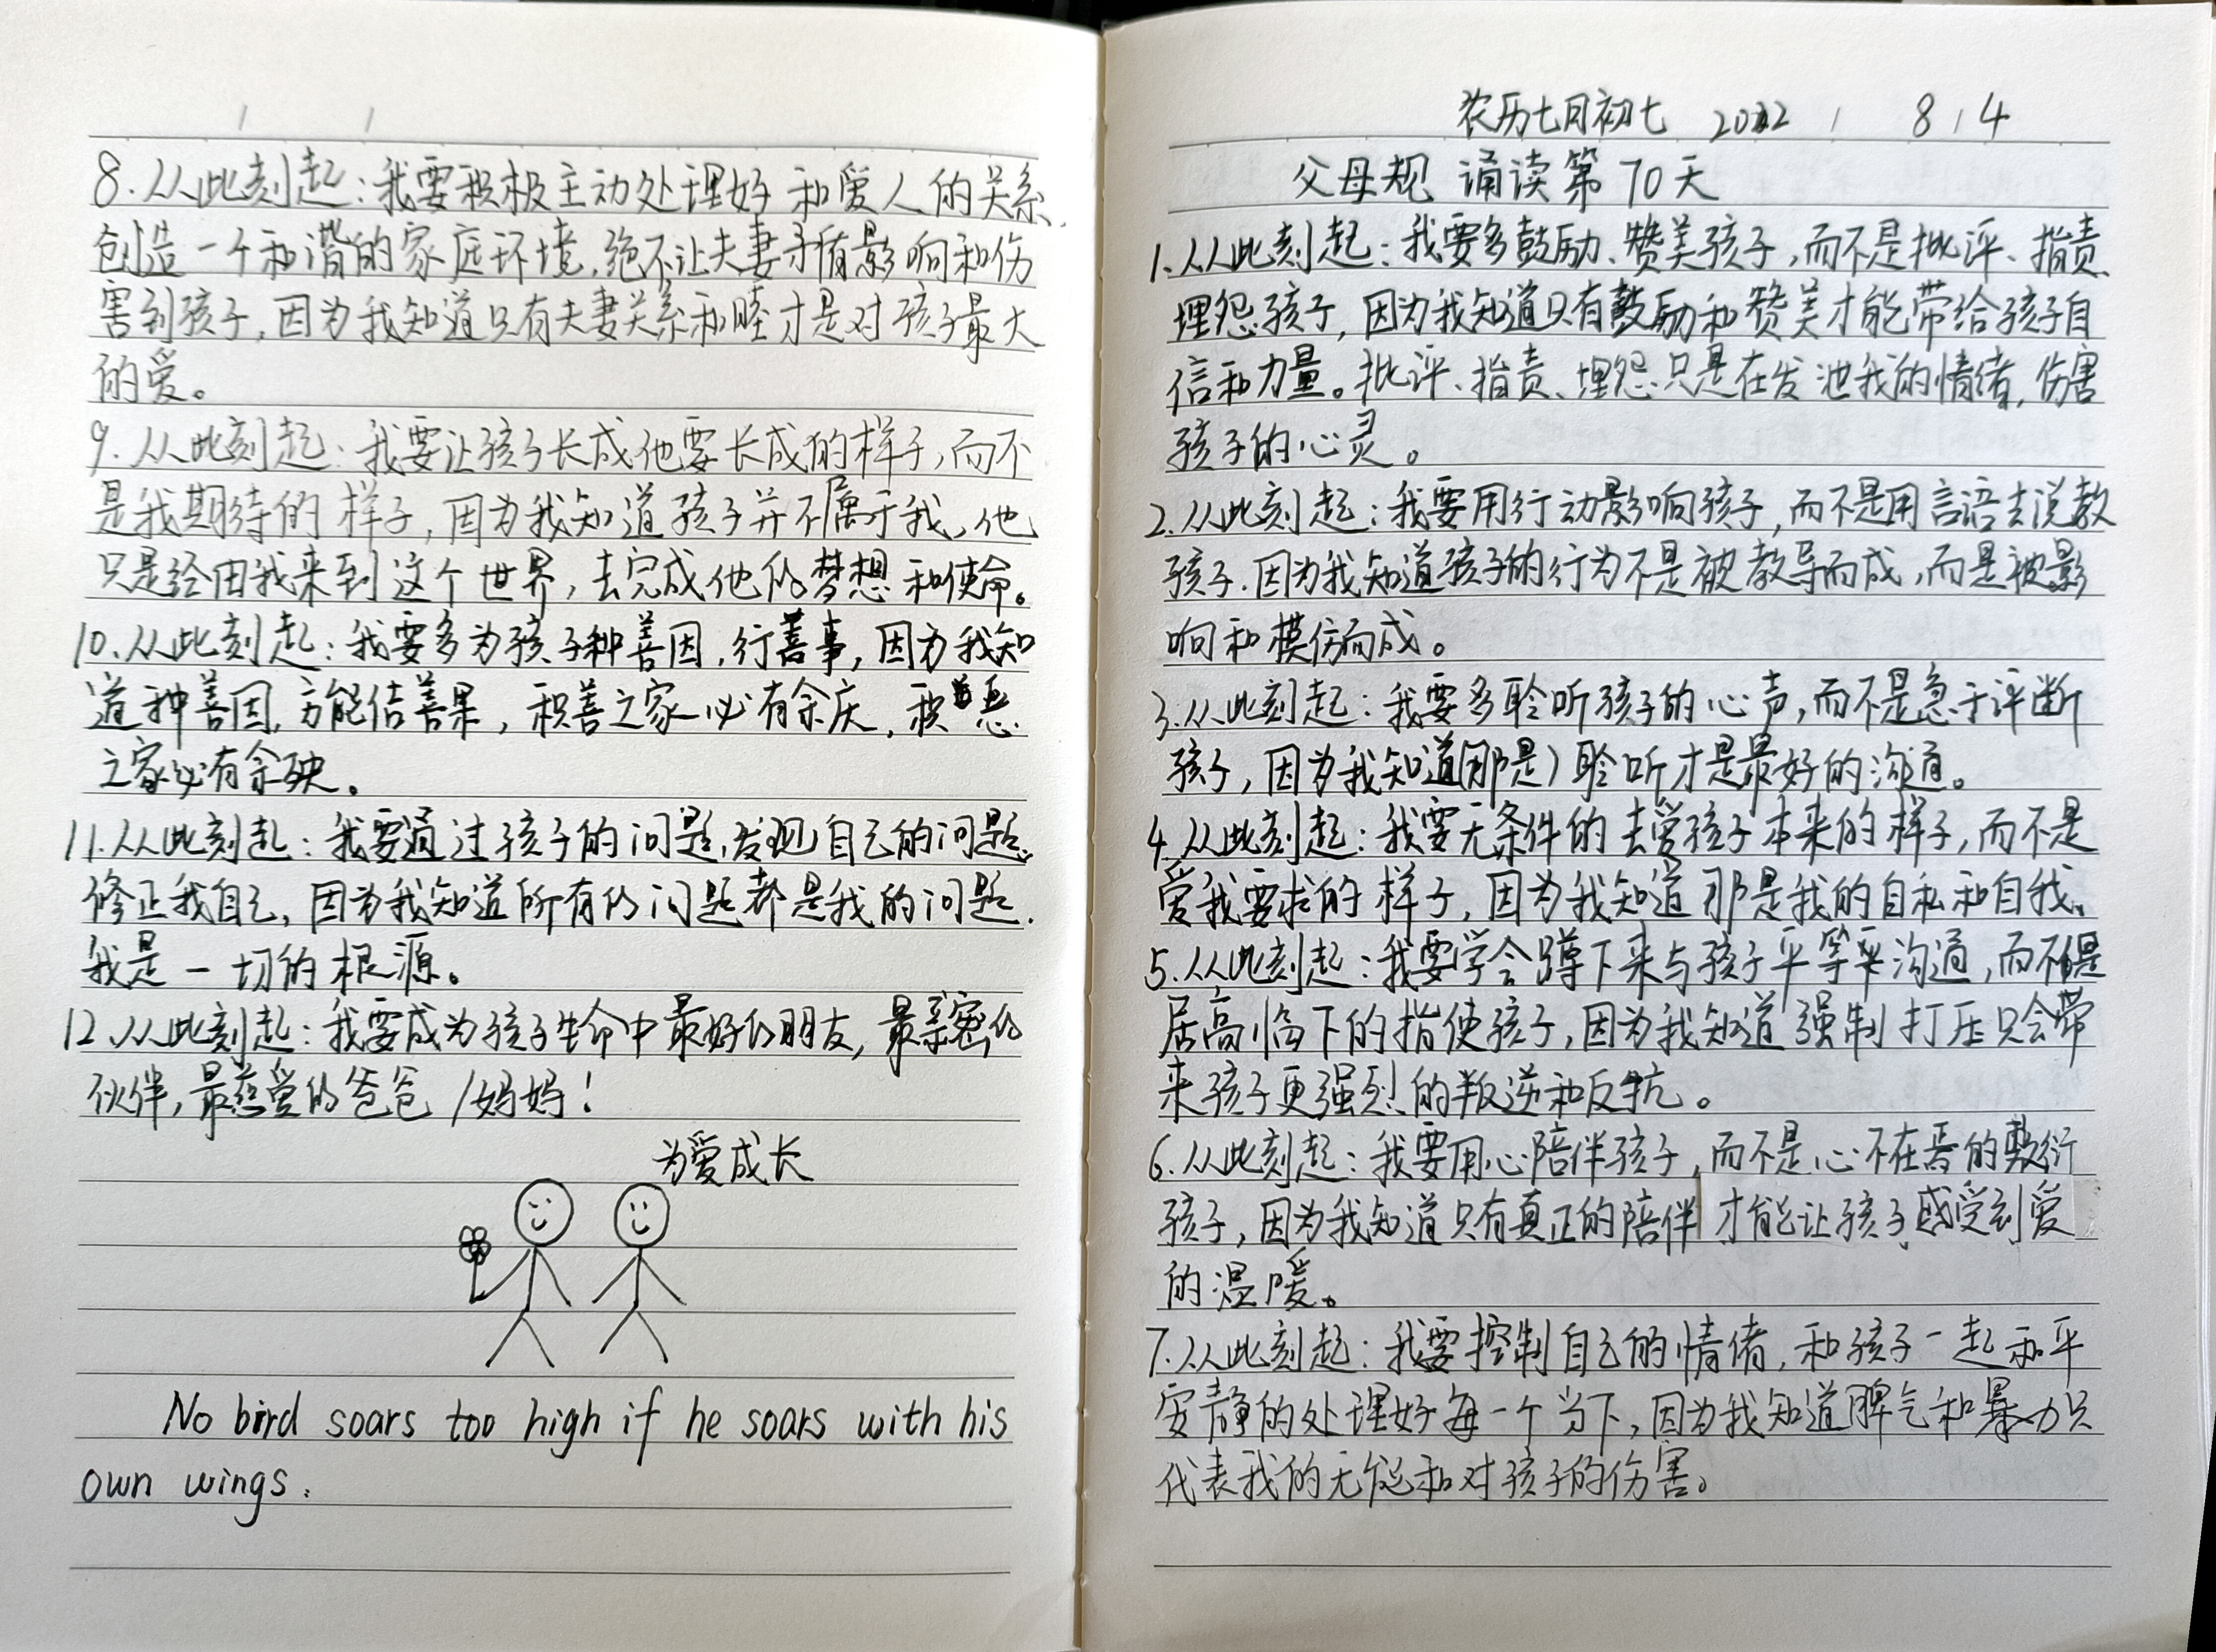 农历七月初七 2022 / 8 / 4
父母规 诵读第70天
1.从此刻起:我要多鼓励、赞美孩子,而不是批评、指责、
埋怨孩子,因为我知道只有鼓励和赞美才能带给孩子自
信和力量。批评、指责、埋怨只是在发泄我的情绪,伤害
孩子的心灵。
2.从此刻起:我要用行动影响孩子,而不是用言语去说教
孩子.因为我知道孩子的行为不是被教导而成,而是被影
响和模仿而成。
3.从此刻起:我要多聆听孩子的心声,而不是急于评断
孩子,因为我知道(那是)聆听才是最好的沟通。
4.从此刻起:我要无条件的去爱孩子本来的样子,而不是
爱我要求的样子,因为我知道那是我的自私和自我。
5.从此刻起:我要学会蹲下来与孩子平等平沟通,而不是
居高临下的指使孩子,因为我知道强制打压只会带
来孩子更强烈的叛逆和反抗。
6.从此刻起:我要用心陪伴孩子,而不是心不在焉的敷衍
孩子,因为我知道只有真正的陪伴才能让孩子感受到爱
的温暖。
7.从此刻起:我要控制自己的情绪,和孩子一起和平
安静的处理好每一个当下,因为我知道脾气和暴力只
代表我的无能和对孩子的伤害。
8.从此刻起:我要积极主动处理好和爱人的关系,
创造一个和谐的家庭环境,绝不让夫妻矛盾影响和伤
害到孩子,因为我知道只有夫妻关系和睦才是对孩子最大
的爱。
9.从此刻起:我要让孩子长成他要长成的样子,而不
是我期待的样子,因为我知道孩子并不属于我,他
只是经由我来到这个世界,去完成他的梦想和使命。
10.从此刻起:我要多为孩子种善因,行善事,因为我知
道种善因,方能结善果,积善之家必有余庆,积恶
之家必有余殃。
11.从此刻起:我要通过孩子的问题,发现自己的问题,
修正我自己,因为我知道所有的问题都是我的问题.
我是一切的根源。
12.从此刻起:我要成为孩子生命中最好的朋友,最亲密的
伙伴,最慈爱的爸爸/妈妈!
为爱成长
No bird soars too high if he soars with his
own wings.